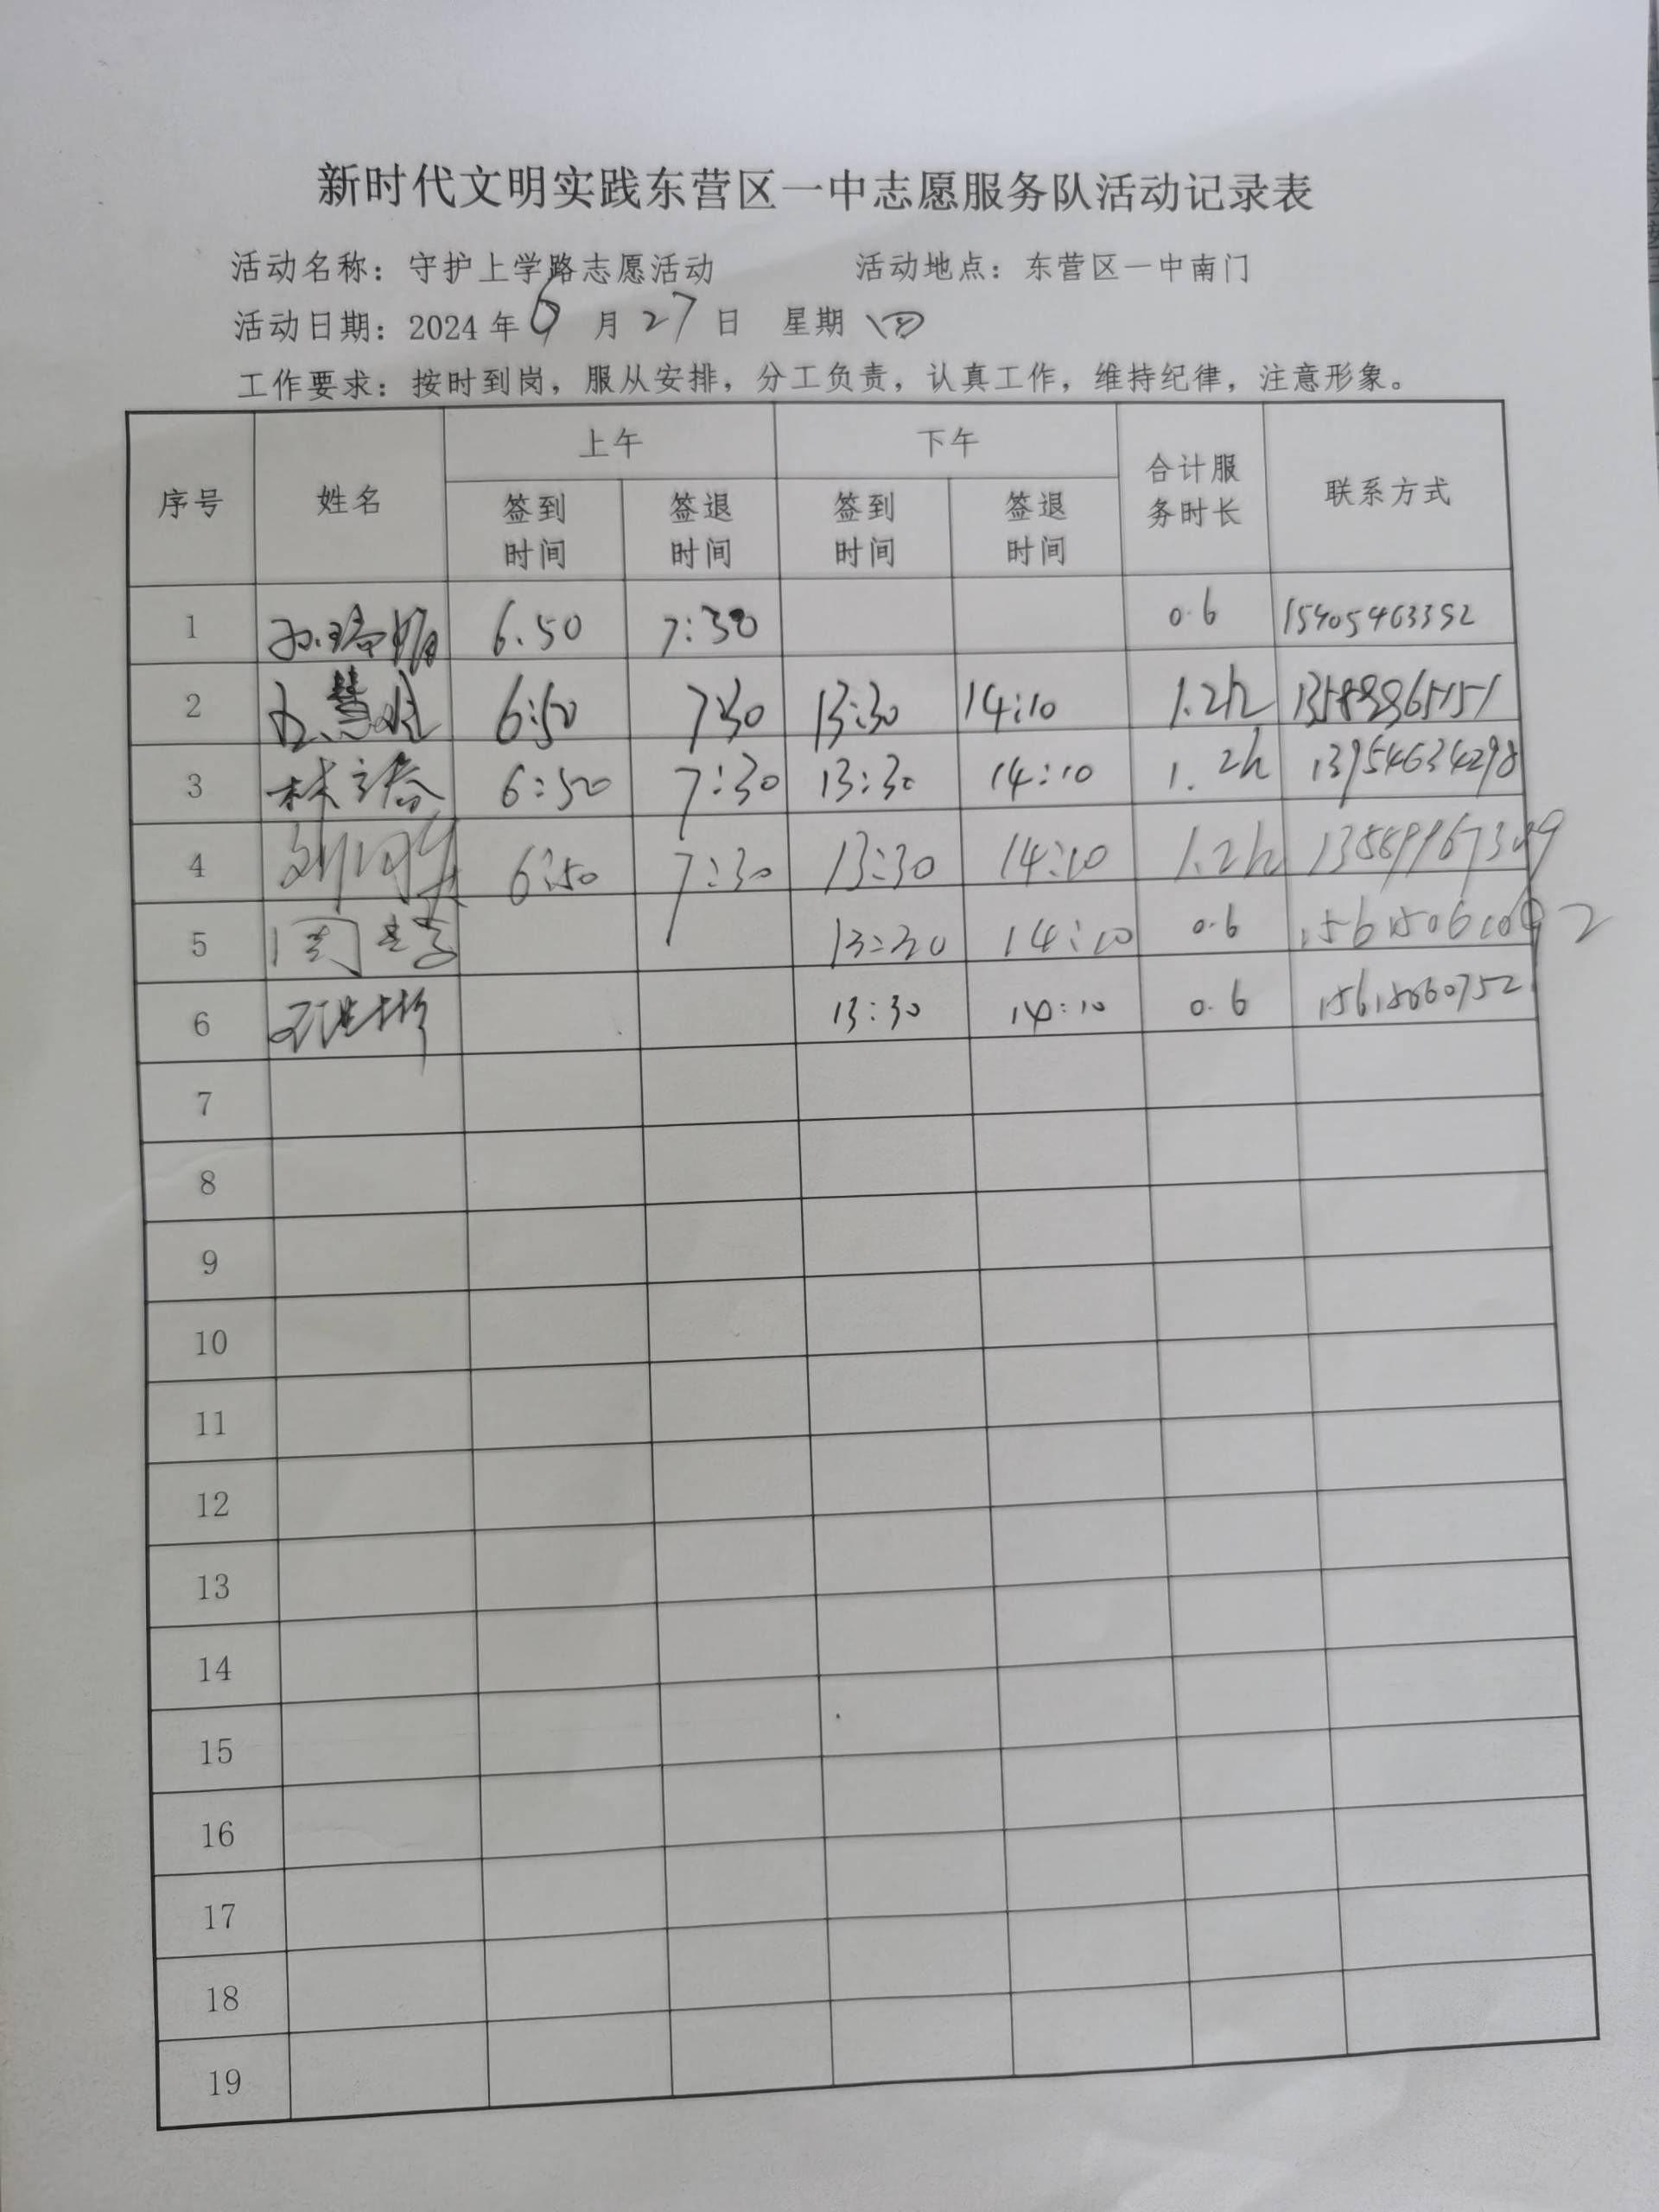 新时代文明实践东营区一中志愿服务队活动记录表
活动名称：守护上学路志愿活动 活动地点：东营区一中南门
活动日期：2024年6月27日 星期四
工作要求：按时到岗，服从安排，分工负责，认真工作，维持纪律，注意形象。
序号 姓名 上午 下午 合计服务时长 联系方式
签到时间 签退时间 签到时间 签退时间
1 6.50 7:30 0.6 15405463352
2 6:50 7:30 13:30 14:10 1.2h
3 6:50 7:30 13:30 14:10 1.2h 13954634298
4 6:50 7:30 13:30 14:10 1.2h
5 13:30 14:10 0.6
6 13:30 14:10 0.6 15615060752
7
8
9
10
11
12
13
14
15
16
17
18
19